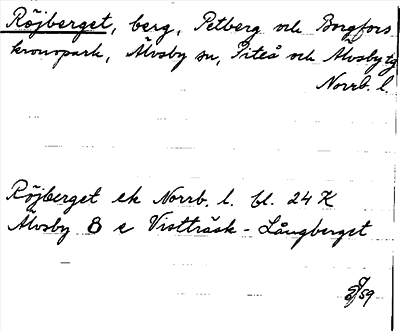 Röjberget, berg, Petberg och Borgfors
kronopark, Älvsby sn, Piteå och Älvsby tg
Norrb. l.
Röjberget ek Norrb. l. bl. 24 K
Älvsby 8 e Vistträsk - Långberget